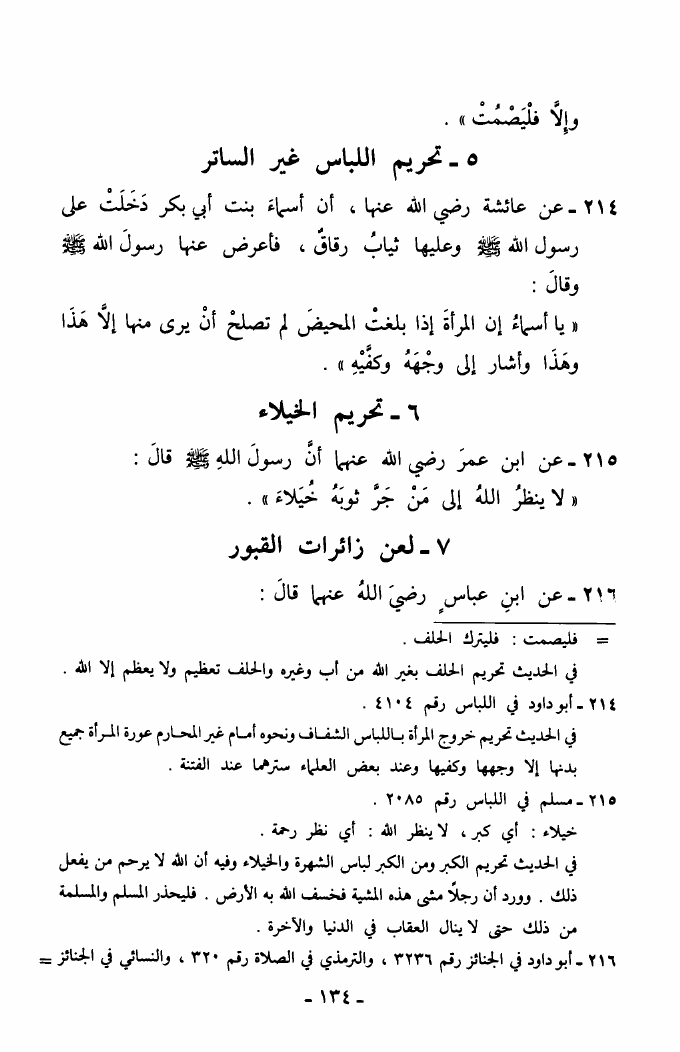 وإلَّا فلْيَصْمُتْ » .
٥ ـ تحريم اللباس غير الساتر
٢١٤ ـ عن عائشة رضي الله عنها ، أن أسماءَ بنت أبي بكر دَخَلَتْ على
رسول الله ﷺ وعليها ثيابُ رقاقٌ ، فأعرض عنها رسولَ الله ﷺ
وقالَ :
« يا أسماءُ إن المرأةَ إذا بلغتْ المحيضَ لم تصلحْ أنْ يرى منها إلَّا هَذَا
وهَذَا وأشار إلى وجْهَهُ وكفَّيْهِ » .
٦ ـ تحريم الخيلاء
٢١٥ ـ عن ابن عمرَ رضي الله عنهما أنَّ رسولَ اللهِ ﷺ قالَ :
« لا ينظرُ اللهُ إلى مَنْ جَرَّ ثوبَهُ خُيَلاءَ » .
٧ ـ لعن زائرات القبور
٢١٦ ـ عن ابنِ عباسٍ رضيَ اللهُ عنهما قالَ :
= فليصمت : فليترك الحلف .
في الحديث تحريم الحلف بغير الله من أب وغيره والحلف تعظيم ولا يعظم إلا الله .
٢١٤ ـ أبو داود في اللباس رقم ٤١٠٤ .
في الحديث تحريم خروج المرأة باللباس الشفاف ونحوه أمام غير المحارم عورة المرأة جميع
بدنها إلا وجهها وكفيها وعند بعض العلماء سترهما عند الفتنة .
٢١٥ ـ مسلم في اللباس رقم ٢٠٨٥ .
خيلاء : أي كبر ، لا ينظر الله : أي نظر رحمة .
في الحديث تحريم الكبر ومن الكبر لباس الشهرة والخيلاء وفيه أن الله لا يرحم من يفعل
ذلك . وورد أن رجلًا مشى هذه المشية فخسف الله به الأرض . فليحذر المسلم والمسلمة
من ذلك حتى لا ينال العقاب في الدنيا والآخرة .
٢١٦ ـ أبو داود في الجنائز رقم ٣٢٣٦ ، والترمذي في الصلاة رقم ٣٢٠ ، والنسائي في الجنائز =
ـ ١٣٤ ـ